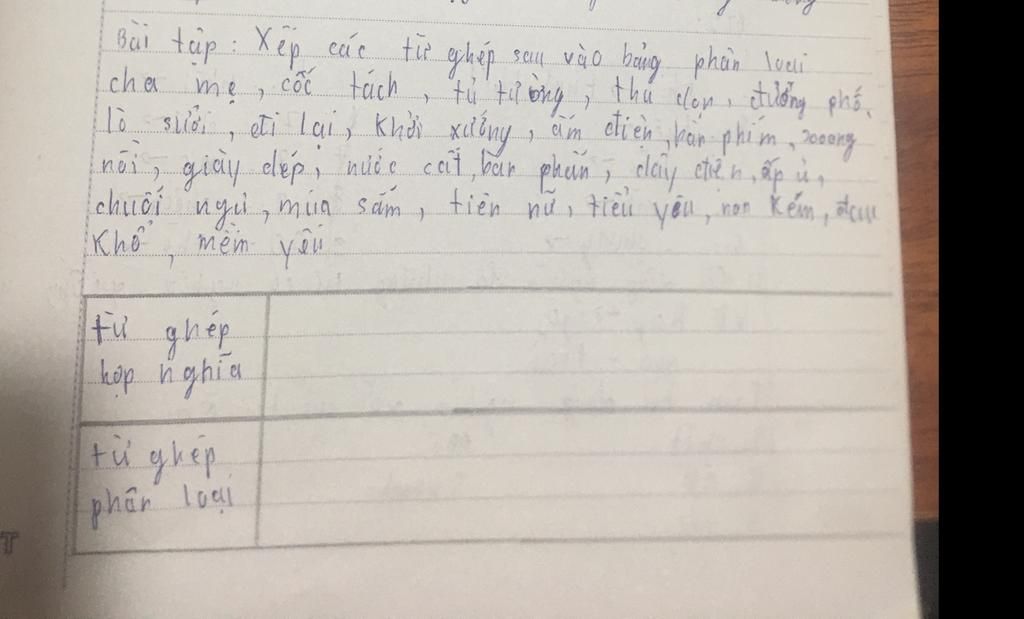 Bài tập : Xếp các từ ghép sau vào bảng phân loại
cha mẹ, cốc tách, tủ tường, thu dọn, đường phố,
lò sưởi, đi lại, khởi xướng, ấm điện, bàn phím, xoong
nồi, giày dép, nước cất, bàn phấn, dây điện, ấp ủ,
chuối ngự, mua sắm, tiên nữ, tiểu yêu, non kém,
khổ, mềm yếu
từ ghép
hợp nghĩa
từ ghép
phân loại
T